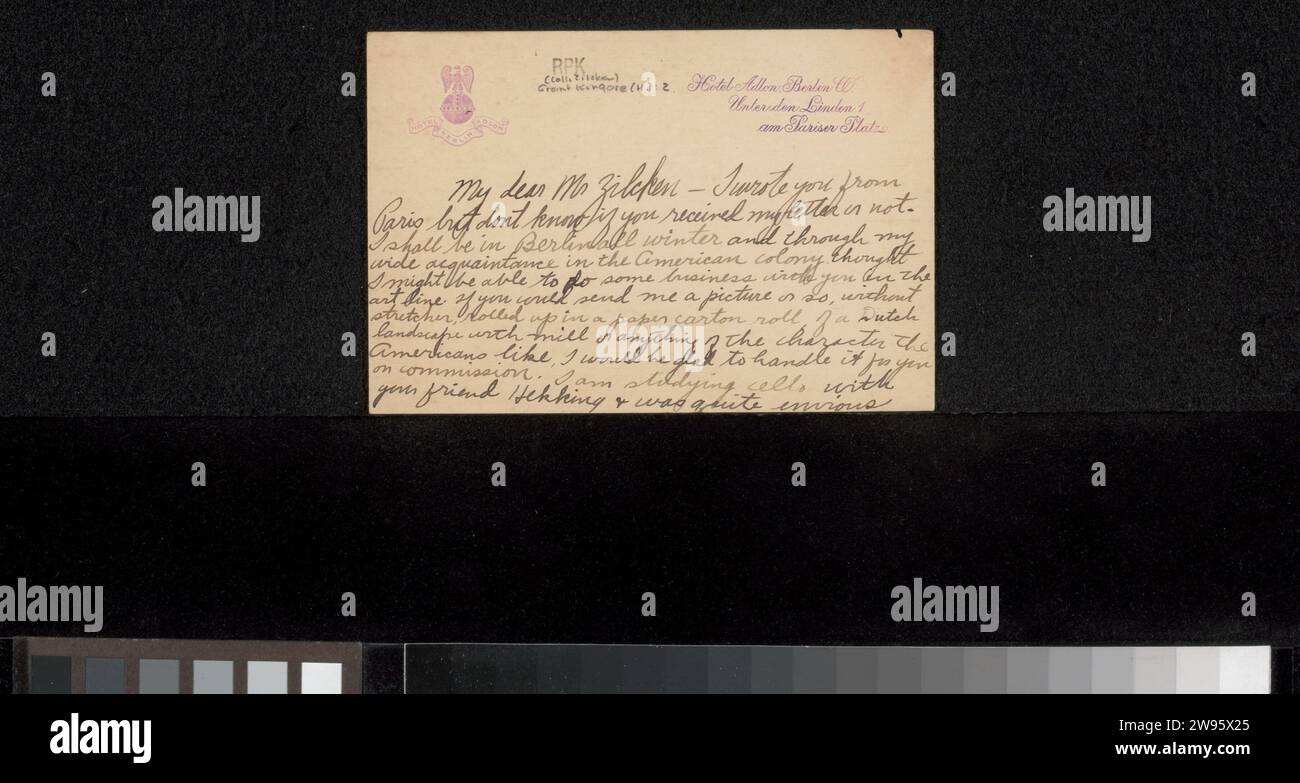 RPK
(Coll. Zilcken)
Grant Kingore (H.): 2
HOTEL ADLON
BERLIN
Hotel Adlon. Berlin W.
Unter den Linden 1
am Pariser Platz.
My dear Mr Zilcken – I wrote you from
Paris but dont know if you received my letter or not.
I shall be in Berlin all winter and through my
wide acquaintance in the American colony, thought
I might be able to do some business with you in the
art line. If you would send me a picture or so, without
stretcher, rolled up in a paper carton roll, of a Dutch
landscape with mill or anything of the character the
Americans like, I would be glad to handle it for you
on commission. I am studying cello with
your friend Hekking & was quite envious
alamy
alamy
Image ID: 2W95X25
www.alamy.com